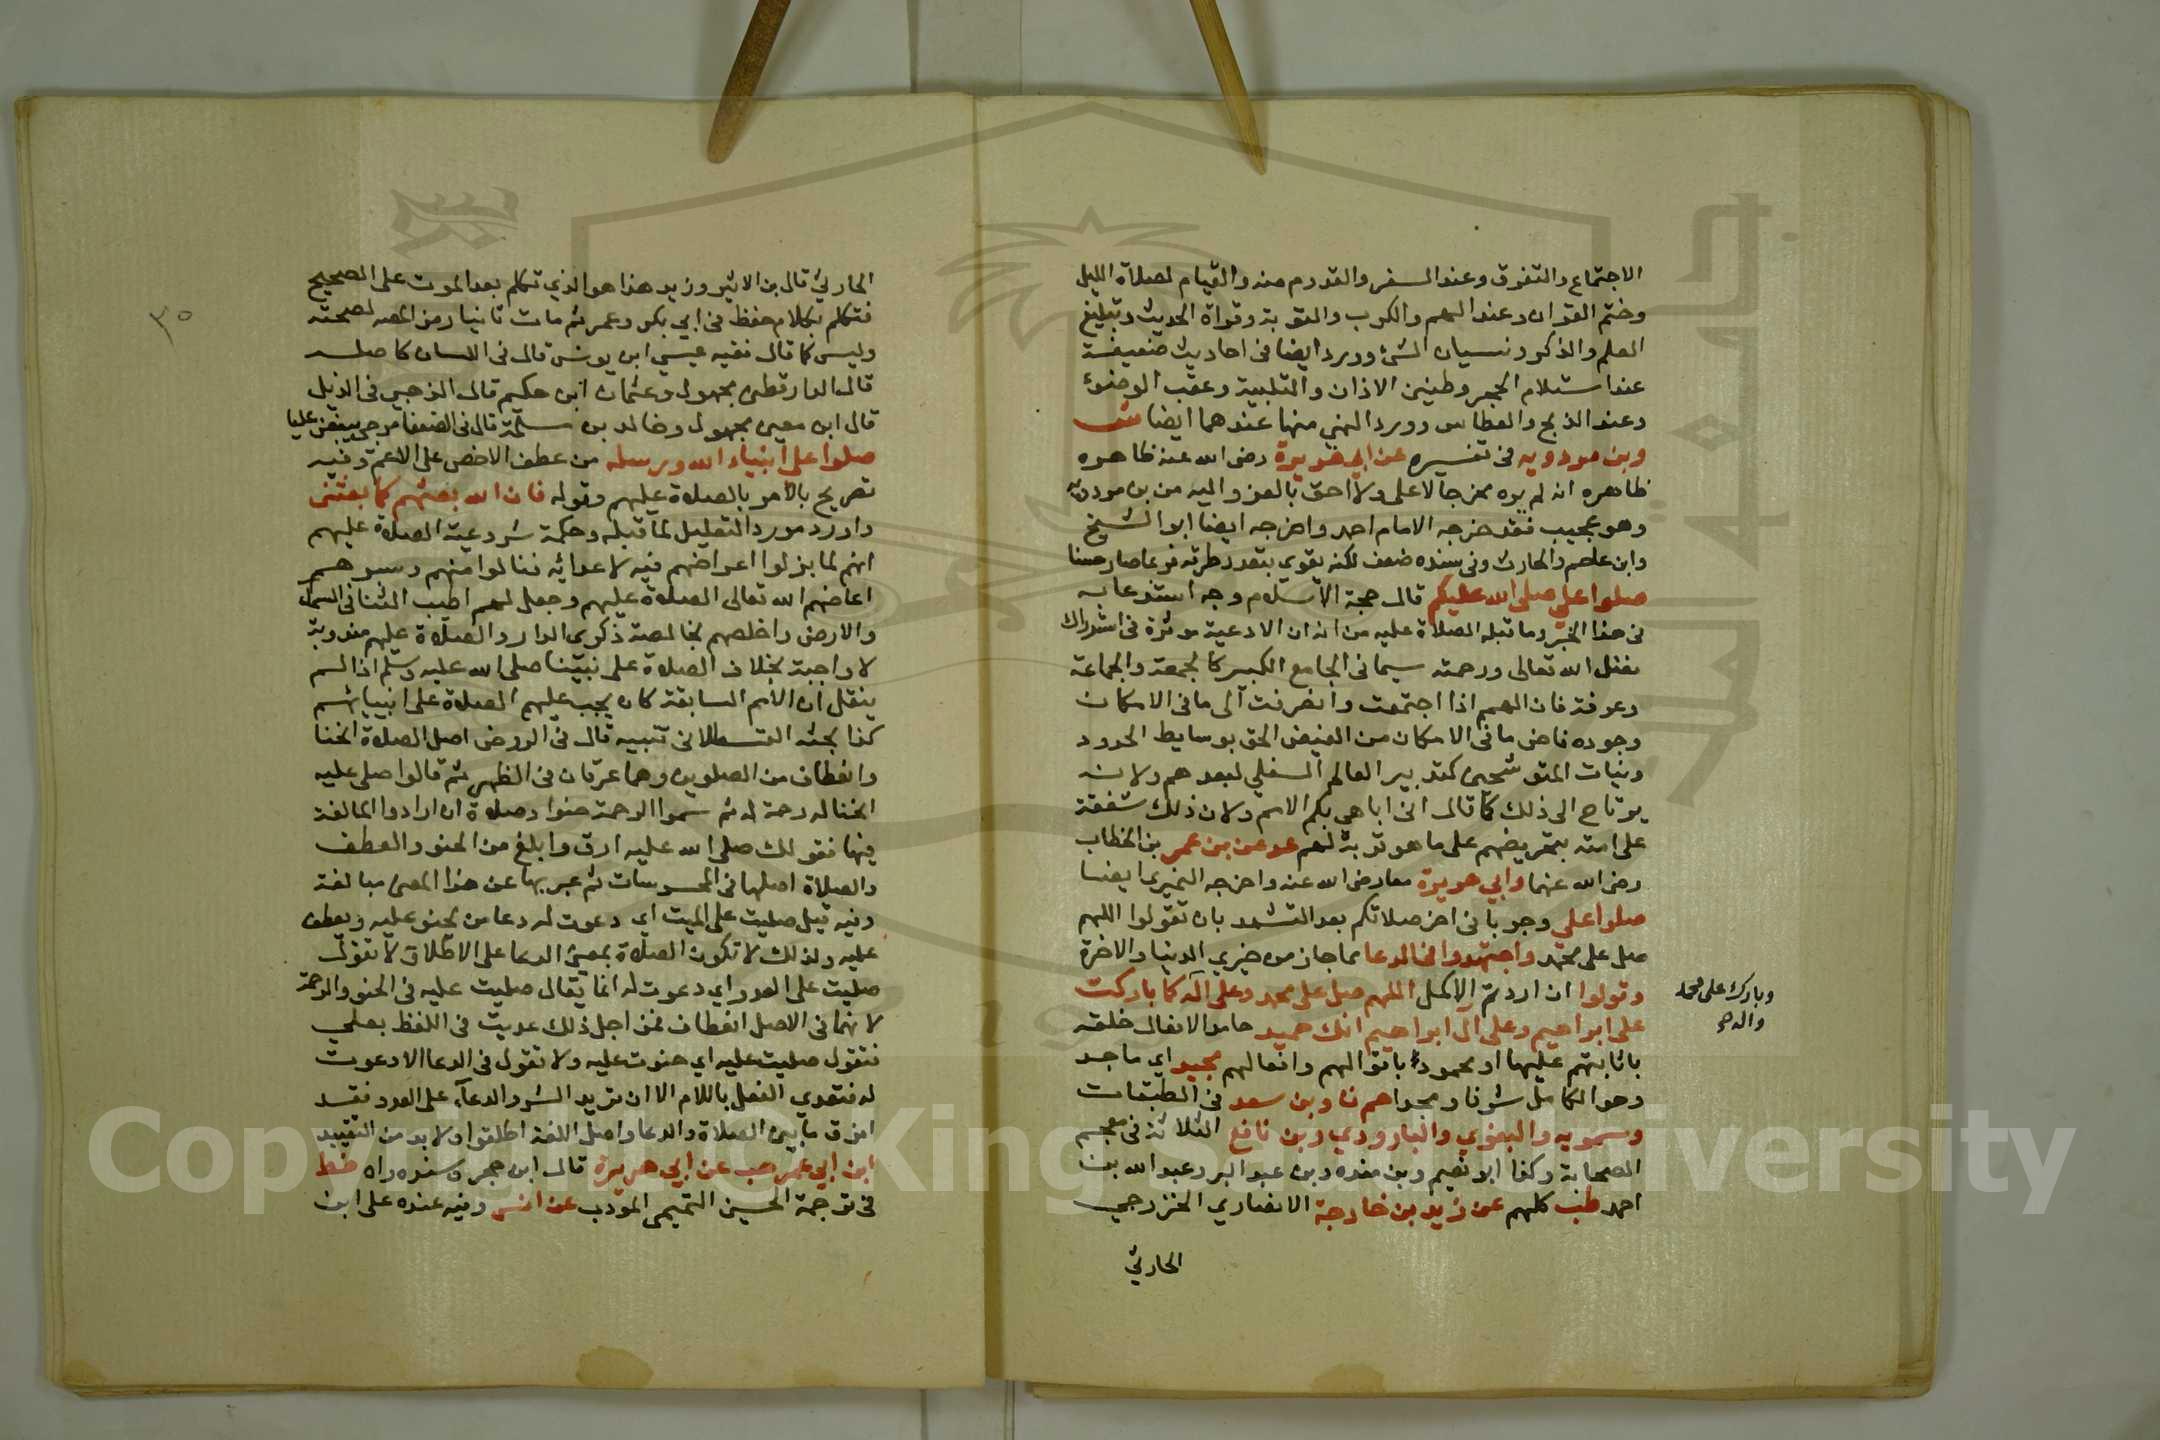 الاجتماع والتفرق وعند السفر والقدوم منه والقيام لصلاة الليل
وختم القران وعند الهم والكرب والتوبة وقراة الحديث وتبليغ
العلم والذكر ونسيان الشئ وورد ايضا في احاديث ضعيفة
عند استلام الحجر وطنين الاذان والتلبية وعقب الوضوء
وعند الذبح والعطاس وورد النهي منها عندهما ايضا ش
وبن مردويه في تفسيره عن ابي هريرة رضي الله عنه ظاهره
ظاهره انه لم يره مخرجا لاعلى ولا احق بالعزو اليه من بن مردويه
وهو عجيب فقد خرجه الامام احمد واخرجه ايضا ابو الشيخ
وابن عاصم والحارث وفي سنده ضعف لكنه يقوي بتعدد طرقه فربما صار حسنا
صلوا علي صلى الله عليكم قال حجة الاسلام وجه استدعايه
في هذا الخبر وما قبله الصلاة عليه من امته ان الادعية موثرة في استدراك
فضل الله تعالى ورحمته سيما في الجامع الكبير كالجمعة والجماعة
وعرفة فان الهمم اذا اجتمعت وانصرفت الى ما في الامكان
وجوده فاض ما في الامكان من الفيض الحق بوسايط
المترشحين كتدبير العالم السفلي لبعدهم ولانه
يرتاح الى ذلك كما قال اني اباهي بكم الامم ولان ذلك شفقة
على امته بتحريضهم على ما هو قربة لهم عد عن بن عمر بن الخطاب
رضي الله عنهما وابي هريرة معا رضي الله عنه واخرجه النميري ايضا
صلوا علي وجوبا في اخر صلاتكم بعد التشهد بان تقولوا اللهم
صل على محمد واجتهدوا في الدعا بما جاز من خيري الدنيا والاخرة
وقولوا ان اردتم الاكمل اللهم صل على محمد وعلى آله كما باركت
وبارك على محمد
واله صح
على ابراهيم وعلى آل ابراهيم انك حميد حامد الافعال خلقه
باثابتهم عليها او محمود باقوالهم وافعالهم مجيد اي ماجد
وهو الكامل شرفا ومجدا هم ن وبن سعد في الطبقات
وسمويه والبغوي والباوردي وبن نافع الثلاثة في معجم
الصحابة وكذا ابو نعيم وبن منده وبن عبد البر وعبد الله بن
احمد طب كلهم عن زيد بن خارجة الانصاري الخزرجي
الحارثي
٣٠
الحارثي قال بن الاثير وزيد هذا هو الذي تكلم بعد الموت على الصحيح
فتكلم بكلام حفظ في ابي بكر وعمر ثم مات ثانيا رمز المصه لصحته
وليس كما قال ففيه عيسى ابن يونس قال في اللسان كاصله
قال الدارقطني مجهول وعثمان ابن حكيم قال الذهبي في الذيل
قال ابن معين مجهول وخالد بن سلمة قال في الضعفا مرجي يبغض عليا
صلوا على انبياء الله ورسله من عطف الاخص على الاعم وفيه
تصريح بالامر بالصلاة عليهم وقوله فان الله بعثهم كما بعثني
وارد مورد التعليل لما قبله وحكمة مشروعية الصلاة عليهم
انهم لما بذلوا اعراضهم فيه لاعدائه فنالوا منهم وسبوهم
اعاضهم الله تعالى الصلاة عليهم وجعل لهم اطيب الثنا في السما
والارض واخلصهم بخالصة ذكرى الدار والصلاة عليهم مندوبة
لا واجبة بخلاف الصلاة على نبينا صلى الله عليه وسلم اذ لم
ينقل ان الامم السابقة كان يجب عليهم الصلاة على انبيائهم
كذا بحثه القسطلاني تنبيه قال في الروض اصل الصلاة انحنا
وانعطاف من الصلوين وهما عرقان في الظهر ثم قالوا صلى عليه
انحنا له رحمة له ثم سموا الرحمة حنوا وصلاة ان ارادوا المالغة
فيها فقولك صلى الله عليه ارق وابلغ من الحنو والعطف
والصلاة اصلها في المحسوسات ثم عبر بها عن هذا المعنى مبالغة
ومنه قيل صليت على الميت اي دعوت له دعا من يحنو عليه ويعطف
عليه ولذلك لا تكون الصلاة بمعنى الدعا على الاطلاق لا تقول
صليت على العدو اي دعوت له انما يقال صليت عليه في الحنو والرحمة
لانها في الاصل انعطاف فمن اجل ذلك عديت في اللفظ بعلي
فتقول صليت عليه اي حنوت عليه ولا تقول في الدعا الا دعوت
له فتعدي الفعل باللام الا ان تريد الشر والدعاء على العدو فقد
افرق ما بين الصلاة والدعا واصل اللغة اطلقوا ولا بد من التقييد
ابن ابي عمر هب عن ابي هريرة قال ابن حجر وسنده واه خط
في ترجمة الحسين التميمي المؤدب عن انس وفيه عنده على ابن
Copyright © King Saud University